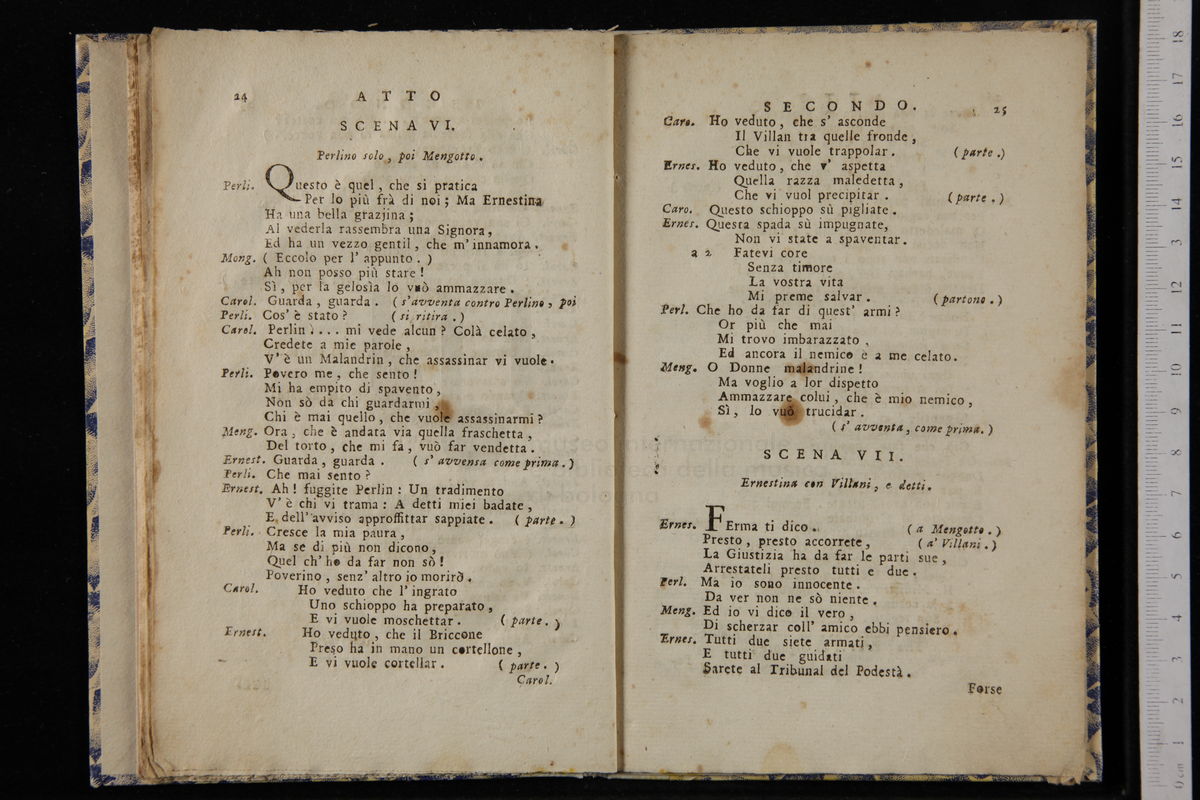 24 ATTO
SCENA VI.
Perlino solo, poi Mengotto.
Perli. Questo è quel, che si pratica
Per lo più frà di noi; Ma Ernestina
Ha una bella grazjina;
Al vederla rassembra una Signora,
Ed ha un vezzo gentil, che m'innamora.
Mong. (Eccolo per l'appunto.)
Ah non posso più stare!
Sì, per la gelosìa lo vuò ammazzare.
Carol. Guarda, guarda. (s'avventa contro Perlino, poi
Perli. Cos'è stato? (si ritira.)
Carol. Perlin.... mi vede alcun? Colà celato,
Credete a mie parole,
V'è un Malandrin, che assassinar vi vuole.
Perli. Povero me, che sento!
Mi ha empito di spavento,
Non sò da chi guardarmi,
Chi è mai quello, che vuole assassinarmi?
Meng. Ora, che è andata via quella fraschetta,
Del torto, che mi fa, vuò far vendetta.
Ernest. Guarda, guarda. (s'avvensa come prima.)
Perli. Che mai sento?
Ernest. Ah! fuggite Perlin: Un tradimento
V'è chi vi trama: A detti miei badate,
E dell'avviso approffittar sappiate. (parte.)
Perli. Cresce la mia paura,
Ma se di più non dicono,
Quel ch'ho da far non sò!
Poverino, senz'altro io morirò.
Carol. Ho veduto che l'ingrato
Uno schioppo ha preparato,
E vi vuole moschettar. (parte.)
Ernest. Ho veduto, che il Briccone
Preso ha in mano un cortellone,
E vi vuole cortellar. (parte.)
Carol.
SECONDO. 25
Caro. Ho veduto, che s'asconde
Il Villan tra quelle fronde,
Che vi vuole trappolar. (parte.)
Ernes. Ho veduto, che v'aspetta
Quella razza maledetta,
Che vi vuol precipitar. (parte.)
Caro. Questo schioppo sù pigliate.
Ernes. Questa spada sù impugnate,
Non vi state a spaventar.
a 2 Fatevi core
Senza timore
La vostra vita
Mi preme salvar. (partono.)
Perl. Che ho da far di quest'armi?
Or più che mai
Mi trovo imbarazzato,
Ed ancora il nemico è a me celato.
Meng. O Donne malandrine!
Ma voglio a lor dispetto
Ammazzare colui, che è mio nemico,
Sì, lo vuò trucidar.
(s'avventa, come prima.)
SCENA VII.
Ernestina con Villani, e detti.
Ernes. Ferma ti dico. (a Mengotto.)
Presto, presto accorrete, (a' Villani.)
La Giustizia ha da far le parti sue,
Arrestateli presto tutti e due.
Perl. Ma io sono innocente.
Da ver non ne sò niente.
Meng. Ed io vi dico il vero,
Di scherzar coll'amico ebbi pensiero.
Ernes. Tutti due siete armati,
E tutti due guidati
Sarete al Tribunal del Podestà.
Forse
museo internazionale
biblioteca della musica
di bologna
0 cm 1 2 3 4 5 6 7 8 9 10 11 12 13 14 15 16 17 18